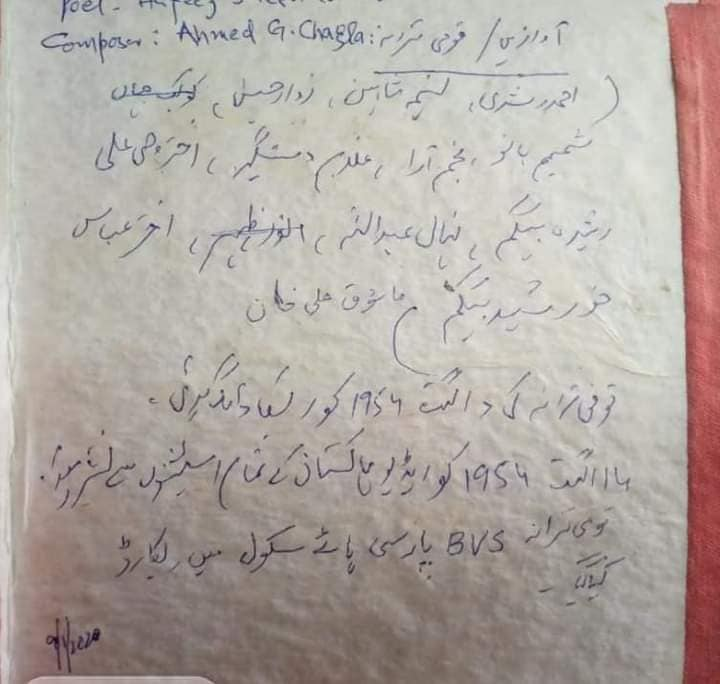 Poet - Hafeez
Composer : Ahmed G. Chagla : آوازیں / قومی ترانہ
( احمد رشدی، نسیم شاہین، زوار حسین، کوکب جہاں
شمیم بانو، نجم آرا، غلام دستگیر، اختر وصی علی
رشیدہ بیگم، نہال عبداللہ، انور ظہیر، اختر عباس
خورشید بیگم ) عاشق علی خان
قومی ترانہ کی اگست 1954 کو
14 اگست 1954 کو ریڈیو پاکستان کے تمام اسٹیشنوں سے نشر ہوا.
قومی ترانہ BVS پارسی ہائے سکول میں ریکارڈ
کیا گیا
9/1/2020